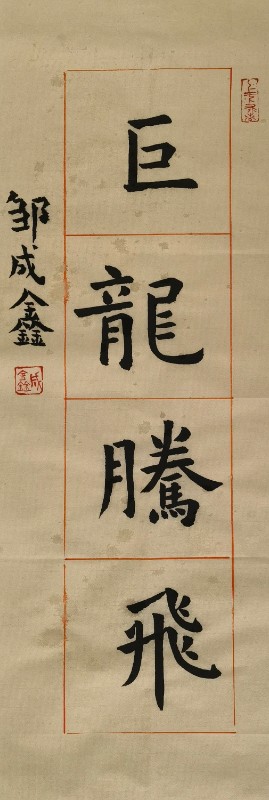 巨龍騰飛
邹成鑫